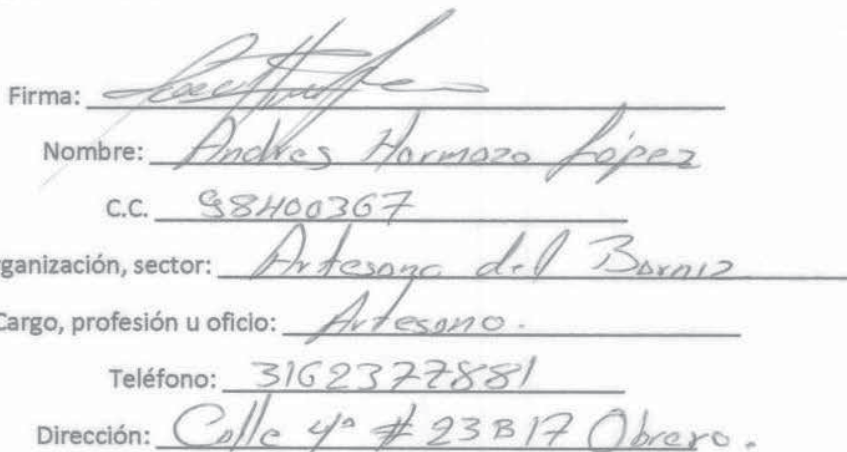 Firma:
Nombre: Andres Hormaza López
C.C. 98400367
rganización, sector: Artesano del Barniz
Cargo, profesión u oficio: Artesano.
Teléfono: 3162377881
Dirección: Calle 4ª # 23B17 Obrero.